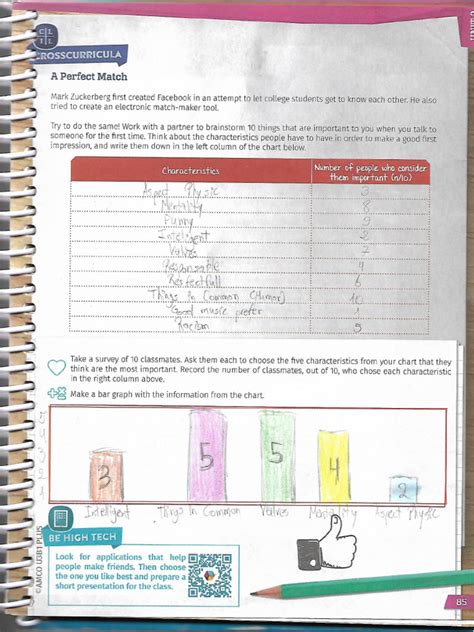 CROSSCURRICULA
A Perfect Match
Mark Zuckerberg first created Facebook in an attempt to let college students get to know each other. He also
tried to create an electronic match-maker tool.
Try to do the same! Work with a partner to brainstorm 10 things that are important to you when you talk to
someone for the first time. Think about the characteristics people have to have in order to make a good first
impression, and write them down in the left column of the chart below.
Characteristics
Number of people who consider
them important (n/10)
Aspect Physic
Mentality 8
Funny
Intelligent
Values 7
Responsable 4
Resfectfull 6
Things In Common (Humor) 10
Good music prefer 1
Racism 5
Take a survey of 10 classmates. Ask them each to choose the five characteristics from your chart that they
think are the most important. Record the number of classmates, out of 10, who chose each characteristic
in the right column above.
Make a bar graph with the information from the chart.
3 5 5 4 2
Intelligent Things In Common Values Mentality Aspect Physic
BE HIGH TECH
Look for applications that help
people make friends. Then choose
the one you like best and prepare a
short presentation for the class.
©AMCO U3B1 PLUS
85